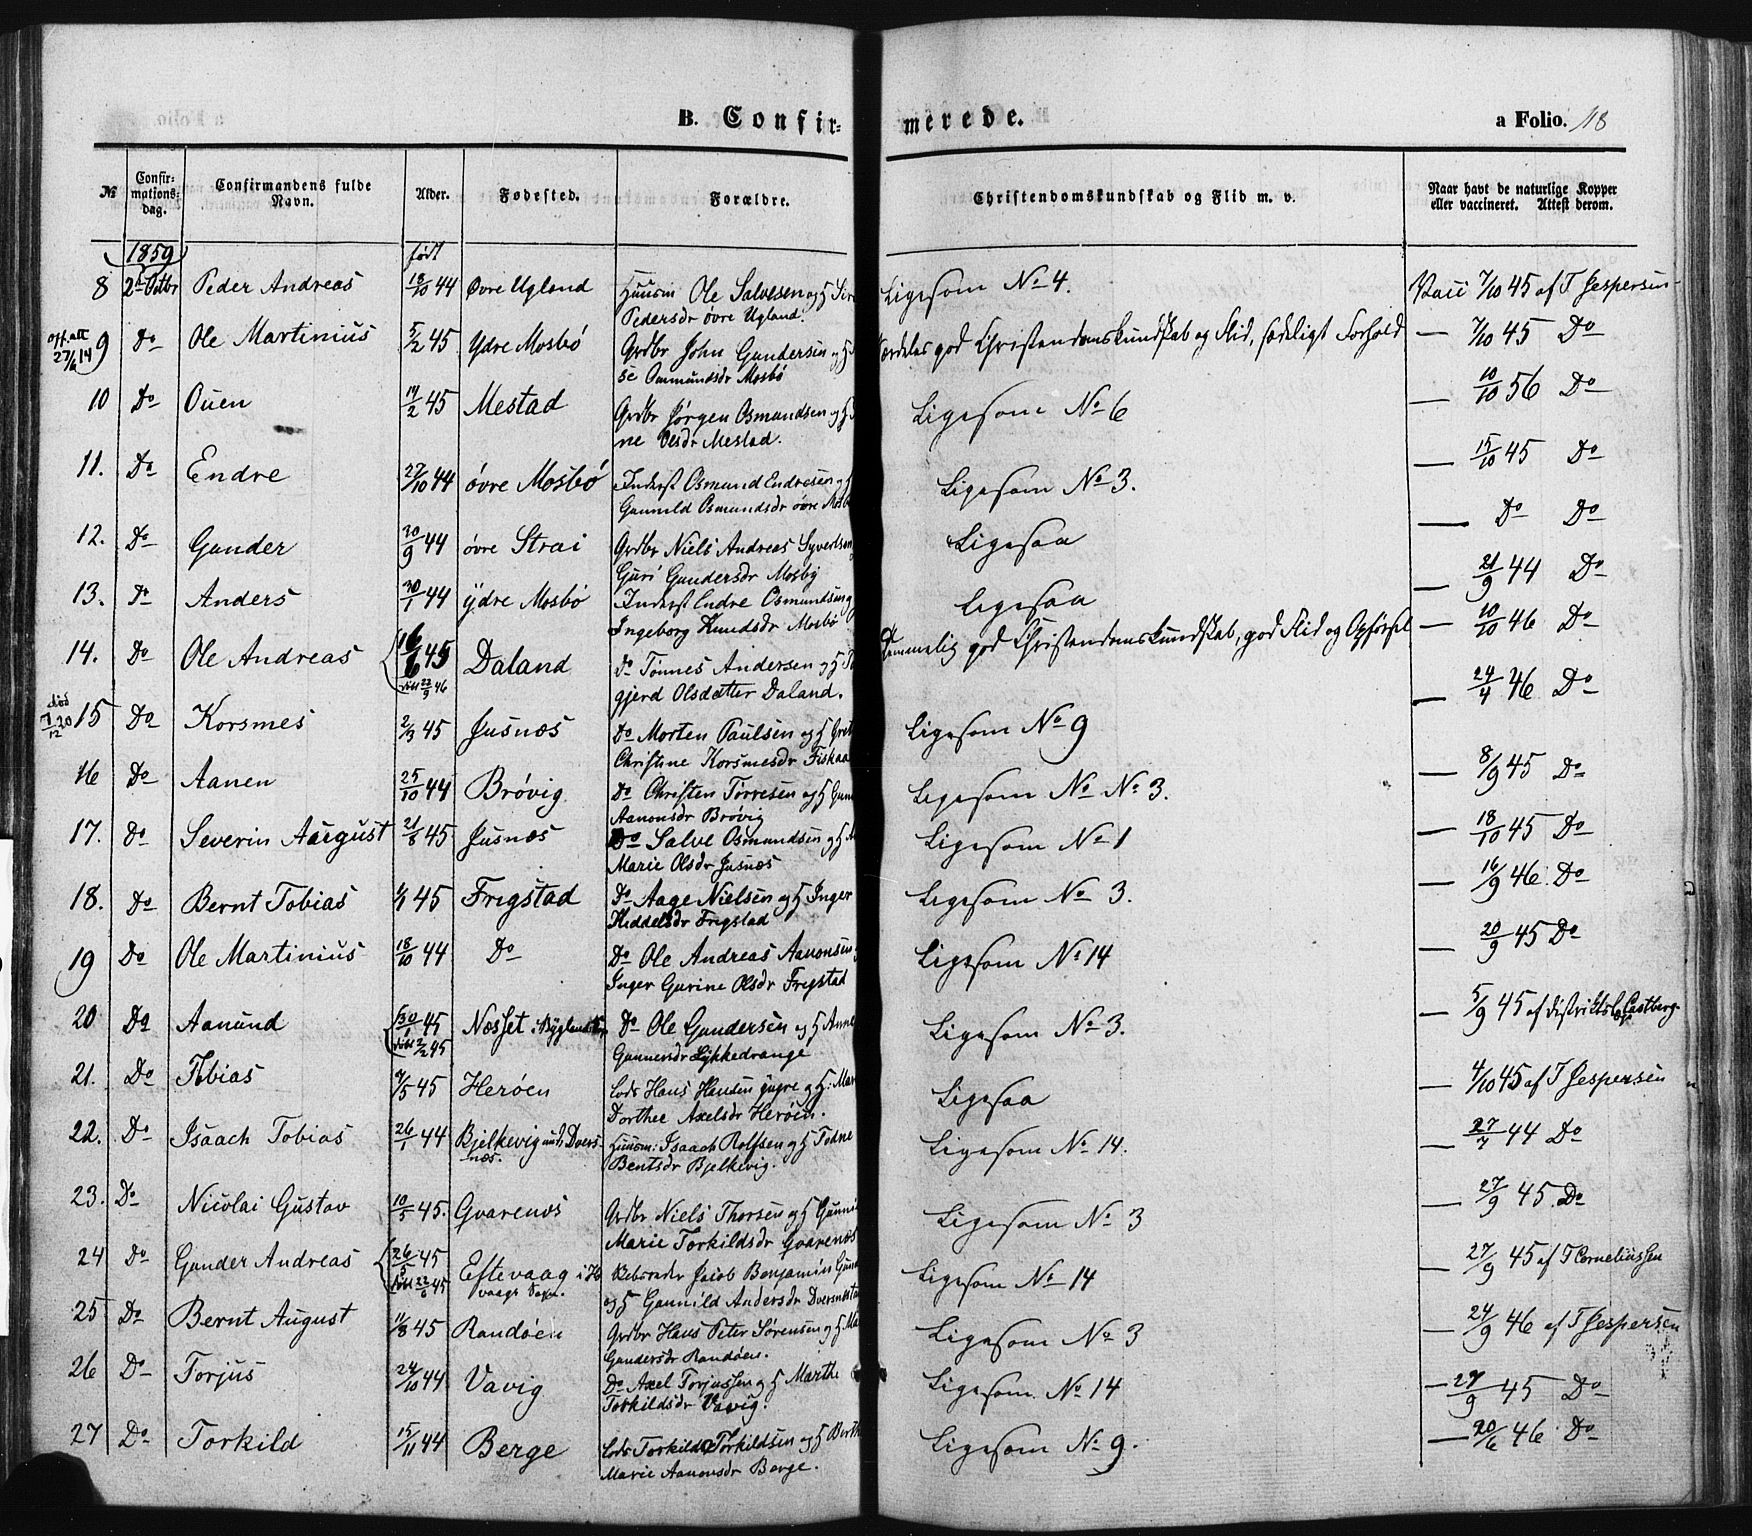 B. Confir-
merede.
a Folio. 118
№ Confir-mations-dag. Confirmandens fulde Navn. Alder. Fødested. Forældre. Christendomskundskab og Flid m. v. Naar havt de naturlige Kopper eller vaccineret. Attest derom.
1859 født
8 2den Octbr Peder Andreas 18/10 44 Øvre Ugland Huusm Ole Salvesen og H Ligesom No 4. Vacc 7/10 45 af T Jespersen
Pedersdr øvre Ugland.
off. att 27/6 14 9 Do Ole Martinius 5/2 45 Ydre Mosbø Grdbr John Gundersen og H god Christendomskundskab og Flid, sædeligt Forhold — 7/10 45 Do
se Ommundsdr Mosbø
10 Do Ouen 14/2 45 Mestad Grdbr Jørgen Osmundsen og H Ligesom No 6 — 10/10 56 Do
ne Olsdr Mestad.
11. Do Endre 27/10 44 øvre Mosbø Inderst Osmund Endresen og H Ligesom No 3. — 15/10 45 Do
Gunnild Osmundsdr øvre Mosb
12. Do Gunder 30/9 44 øvre Strai Grdbr Niels Andreas Syvertsen Ligesaa — Do Do
Guri Gundersdr Mosby
13. Do Anders 30/1 44 ydre Mosbø Inderst Endre Osmundsen Ligesaa — 21/9 44 Do
Ingeborg Knudsdr Mosbø
14. Do Ole Andreas 16/6 45 døbt 22/9 46 Daland Do Tønnes Andersen og H temmelig god Christendomskundskab, god Flid og Opførsel — 10/10 46 Do
gjerd Olsdatter Daland.
død 7/12 20 15 Do Korsmes 2/3 45 Jusnæs Do Morten Paulsen og H Gret Ligesom No 9 — 24/4 46 Do
Christine Korsmesdr Fiskaa
16 Do Aanen 25/10 44 Brøvig Do Christen Tørresen og H Gun Ligesom No No 3. — 8/9 45 Do
Aanonsdr Brøvig
17. Do Severin Aaugust 21/8 45 Jusnæs Do Salve Osmundsen og H Ligesom No 1 — 18/10 45 Do
Marie Olsdr Jusnæs
18. Do Bernt Tobias 4/1 45 Frigstad Do Aage Nielsen og H Inger Ligesom No 3. — 16/9 46. Do
Kiddelsdr Frigstad
19 Do Ole Martinius 18/10 44 Do Do Ole Andreas Aanonsen Ligesom No 14 — 20/9 45 Do
Inger Gurine Olsdr Frigstad
20 Do Aanund 30/1 45 døbt 2/2 45 Næsset i Bygland Do Ole Gundersen og H Anne Ligesom No 3. — 5/9 45 af distriktsl. Castberg
Gunnersdr Lykkedrange
21. Do Tobias 9/5 45 Herøen Lods Hans Hansen yngre og H: Mar Ligesaa — 4/10 45 af T Jespersen
Dorthee Axelsdr Herøen.
22. Do Isaach Tobias 26/1 44 Bjelkevig und. Dversnæs. Huusm: Isaach Rolfsen og H Todne Ligesom No 14. — 27/7 44 Do
Bentsdr Bjelkevig.
23. Do Nicolai Gustav 10/5 45. Gvarenæs Grdbr Niels Thorsen og H Gunni Ligesom No 3 — 27/9 45. Do
Marie Torkildsdr Gvarenæs
24 Do Gunder Andreas 26/5 45 døbt 22/6 45 Eftevaag i Hvaags Sogn. Jacob Benjamin Gund Ligesom No 14 — 27/9 45 af T Corneliussen
og H Gunnild Andersdr Dversnæs
25 Do Bernt August 11/8 45 Randøen Grdbr Hans Peter Sørensen og H Ma Ligesom No 3 — 24/9 46 af T Jespersen
Gundersdr Randøen.
26 Do Torjus 24/10 44 Vavig Do Axel Torjussen og H Marthe Ligesom No 14 — 27/9 45 Do
Torkildsdr Vavig.
27 Do Torkild 15/11 44 Berge Lods Torkild Torkildsen og H Berth Ligesom No 9. — 20/6 46 Do
Marie Aanonsdr Berge.